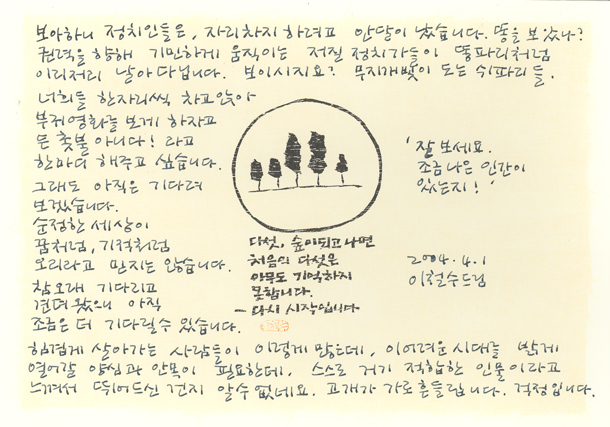 보아하니 정치인들은, 자리차지 하려고 안달이 났습니다. 똥을 보았나?
권력을 향해 기민하게 움직이는 저질 정치가들이 똥파리처럼
이리저리 날아다닙니다. 보이시지요? 무지개빛이 도는 쉬파리들.
너희들 한자리씩 차고 앉아
부귀영화를 보게 하자고
든 촛불 아니다! 라고
한마디 해주고 싶습니다.
그래도 아직은 기다려
보겠습니다.
순정한 세상이
꿈처럼, 기적처럼
오리라고 믿지는 않습니다.
참 오래 기다리고
견뎌왔으니 아직
조금은 더 기다릴 수 있습니다.
다섯, 숲이 되고 나면
처음의 다섯은
아무도 기억하지
못합니다.
– 다시 시작입니다
'잘 보세요.
조금 나은 인간이
있는지!'
2004.4.1
이철수드림
힘겹게 살아가는 사람들이 이렇게 많은데, 이 어려운 시대를 밝게
열어갈 양심과 안목이 필요한데, 스스로 거기 적합한 인물이라고
느껴서 뛰어드신 건지 알 수 없네요. 고개가 가로 흔들립니다. 걱정입니다.